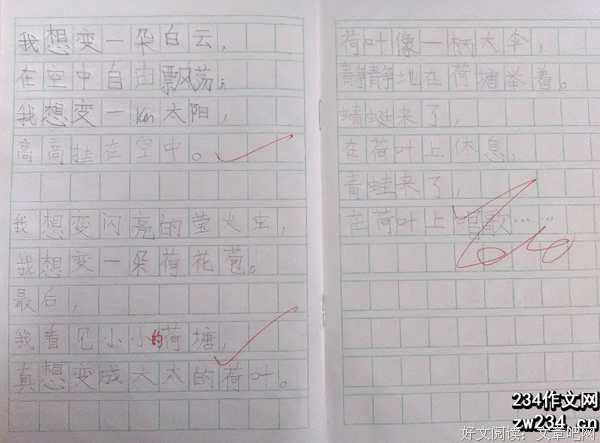 我想变一朵白云，
在空中自由飘荡；
我想变一lún太阳，
高高挂在空中。
我想变闪亮的萤火虫，
我想变一朵荷花苞。
最后，
我看见小小的荷塘，
真想变成大大的荷叶。
荷叶像一柄大伞，
静静地在荷塘举着。
蜻蜓来了，
在荷叶上休息，
青蛙来了，
在荷叶上唱歌……
234作文网
zw234.cn
好文阅读：文章吧网